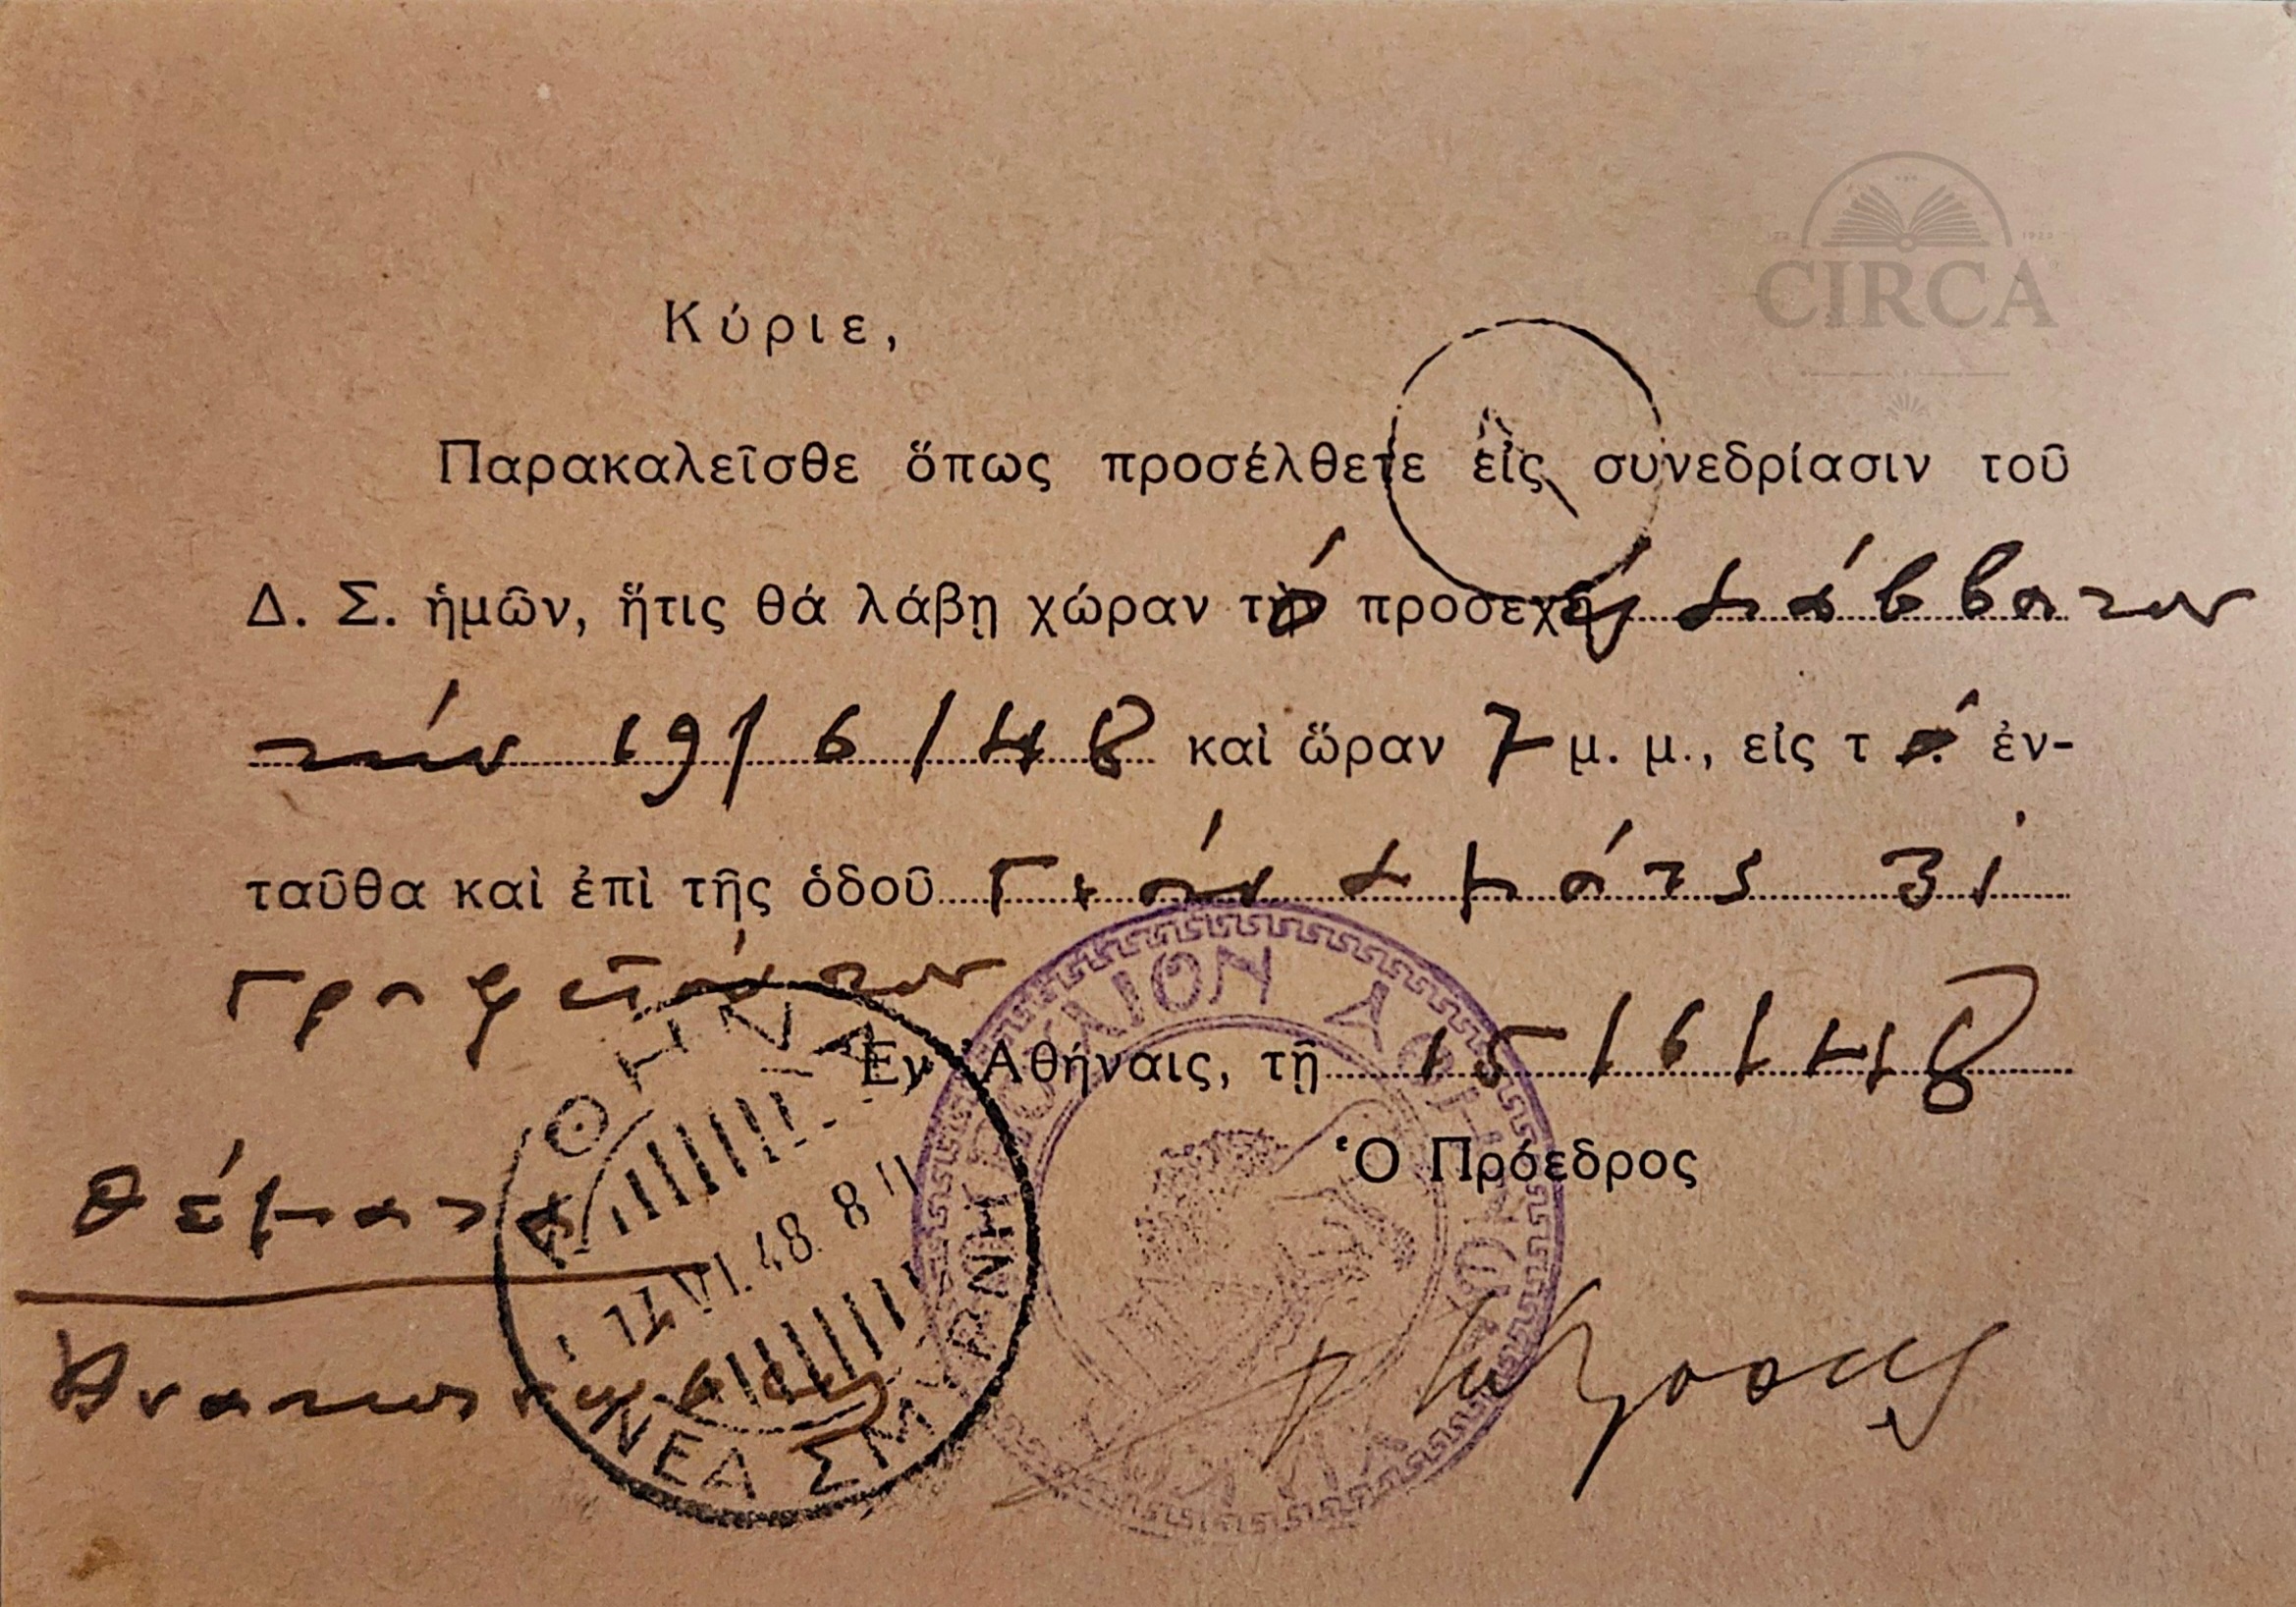 CIRCA
Κύριε,
Παρακαλεῖσθε ὅπως προσέλθετε εἰς συνεδρίασιν τοῦ
Δ. Σ. ἡμῶν, ἥτις θά λάβῃ χώραν τό προσεχές Σάββατον
τήν 19/6/48 καὶ ὥραν 7 μ. μ., εἰς τά ἐν-
ταῦθα καὶ ἐπὶ τῆς ὁδοῦ
Ἐν Ἀθήναις, τῇ 15/6/48
Ὁ Πρόεδρος
Θέματα
ΑΘΗΝΑΙ
VI.48. 8
ΝΕΑ ΣΜΥΡΝΗ